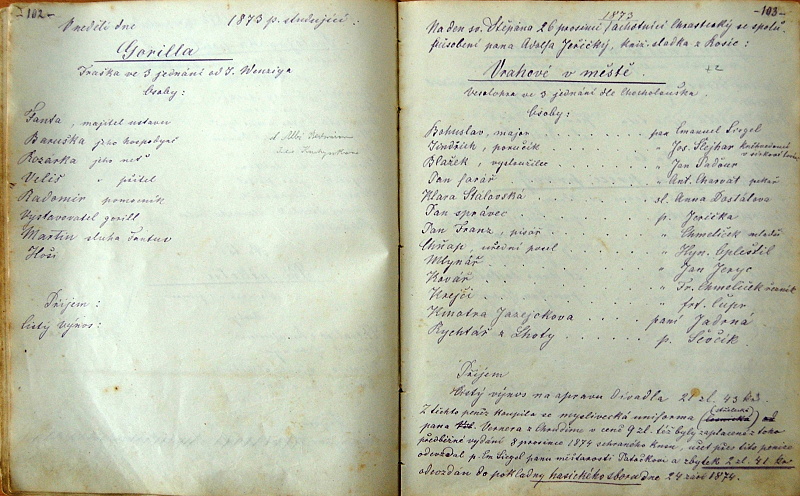 -102-
V neděli dne 1873 p. studující:
Gorilla
Fraška ve 3 jednání od J. Wenziga
Osoby:
Fanta, majitel ustavu
Bariška jeho hospodyně
Rezarka jeho neť
Veliš " přítel
Radomír pomocník
Vystavovatel gorill
Martin sluha Fantův
Hoši
Příjem:
čistý výnos:
-103-
1873
Na den sv. Štěpána 26 prosince šlechtníci Chrastečtí se spolu-
působení pana Adolfa Jeřičky, kníž. sladka z Rosic:
Vrahové v městě. +2
Veselohra ve 3 jednání dle Chocholouška.
Osoby:
Bohuslav, major . . . . . . . pan Emanuel Siegel
Jindřich, poručík . . . . . . " Jos. Šlejhar
Blažek, vysloužilec . . . . . " Jan Paďour
Pan farář . . . . . . " Ant. Charvát pekař
Klara Stálovská . . . . . . sl. Anna Dostálova
Pan správec . . . . . . p. Jeřička
Pan Franz, písář . . . . . . " Chmelíček mladší
Chňap, uřední posel . . . . . . " Hyn. Oplištil
Mlynář . . . . . . " Jan Jeryc
Kovář . . . . . . " Fr. Chmelíček
Krejčí . . . . . . " frt. Čupr
Kmotra Jazejckova . . . . . paní Jadrná
Rychtář z Lhoty . . . . . . p. Ševčík.
Příjem
čistý výnos na opravu Divadla 21 zl. 43 kr.
Z těchto peněz koupila se myslivecká uniforma od
pana Vernera z Chrudimě v ceně 9 zl. též byly zaplacené z toho
předběžné vydání 8 prosince 1874 sehraného kusu, účet přes tito peníze
odevzdal p. Em Siegel panu měšťanosti Patočkovi a zbytek 2 zl. 41 kr
odevzdán do pokladny hasického sboru dne 24 září 1874.